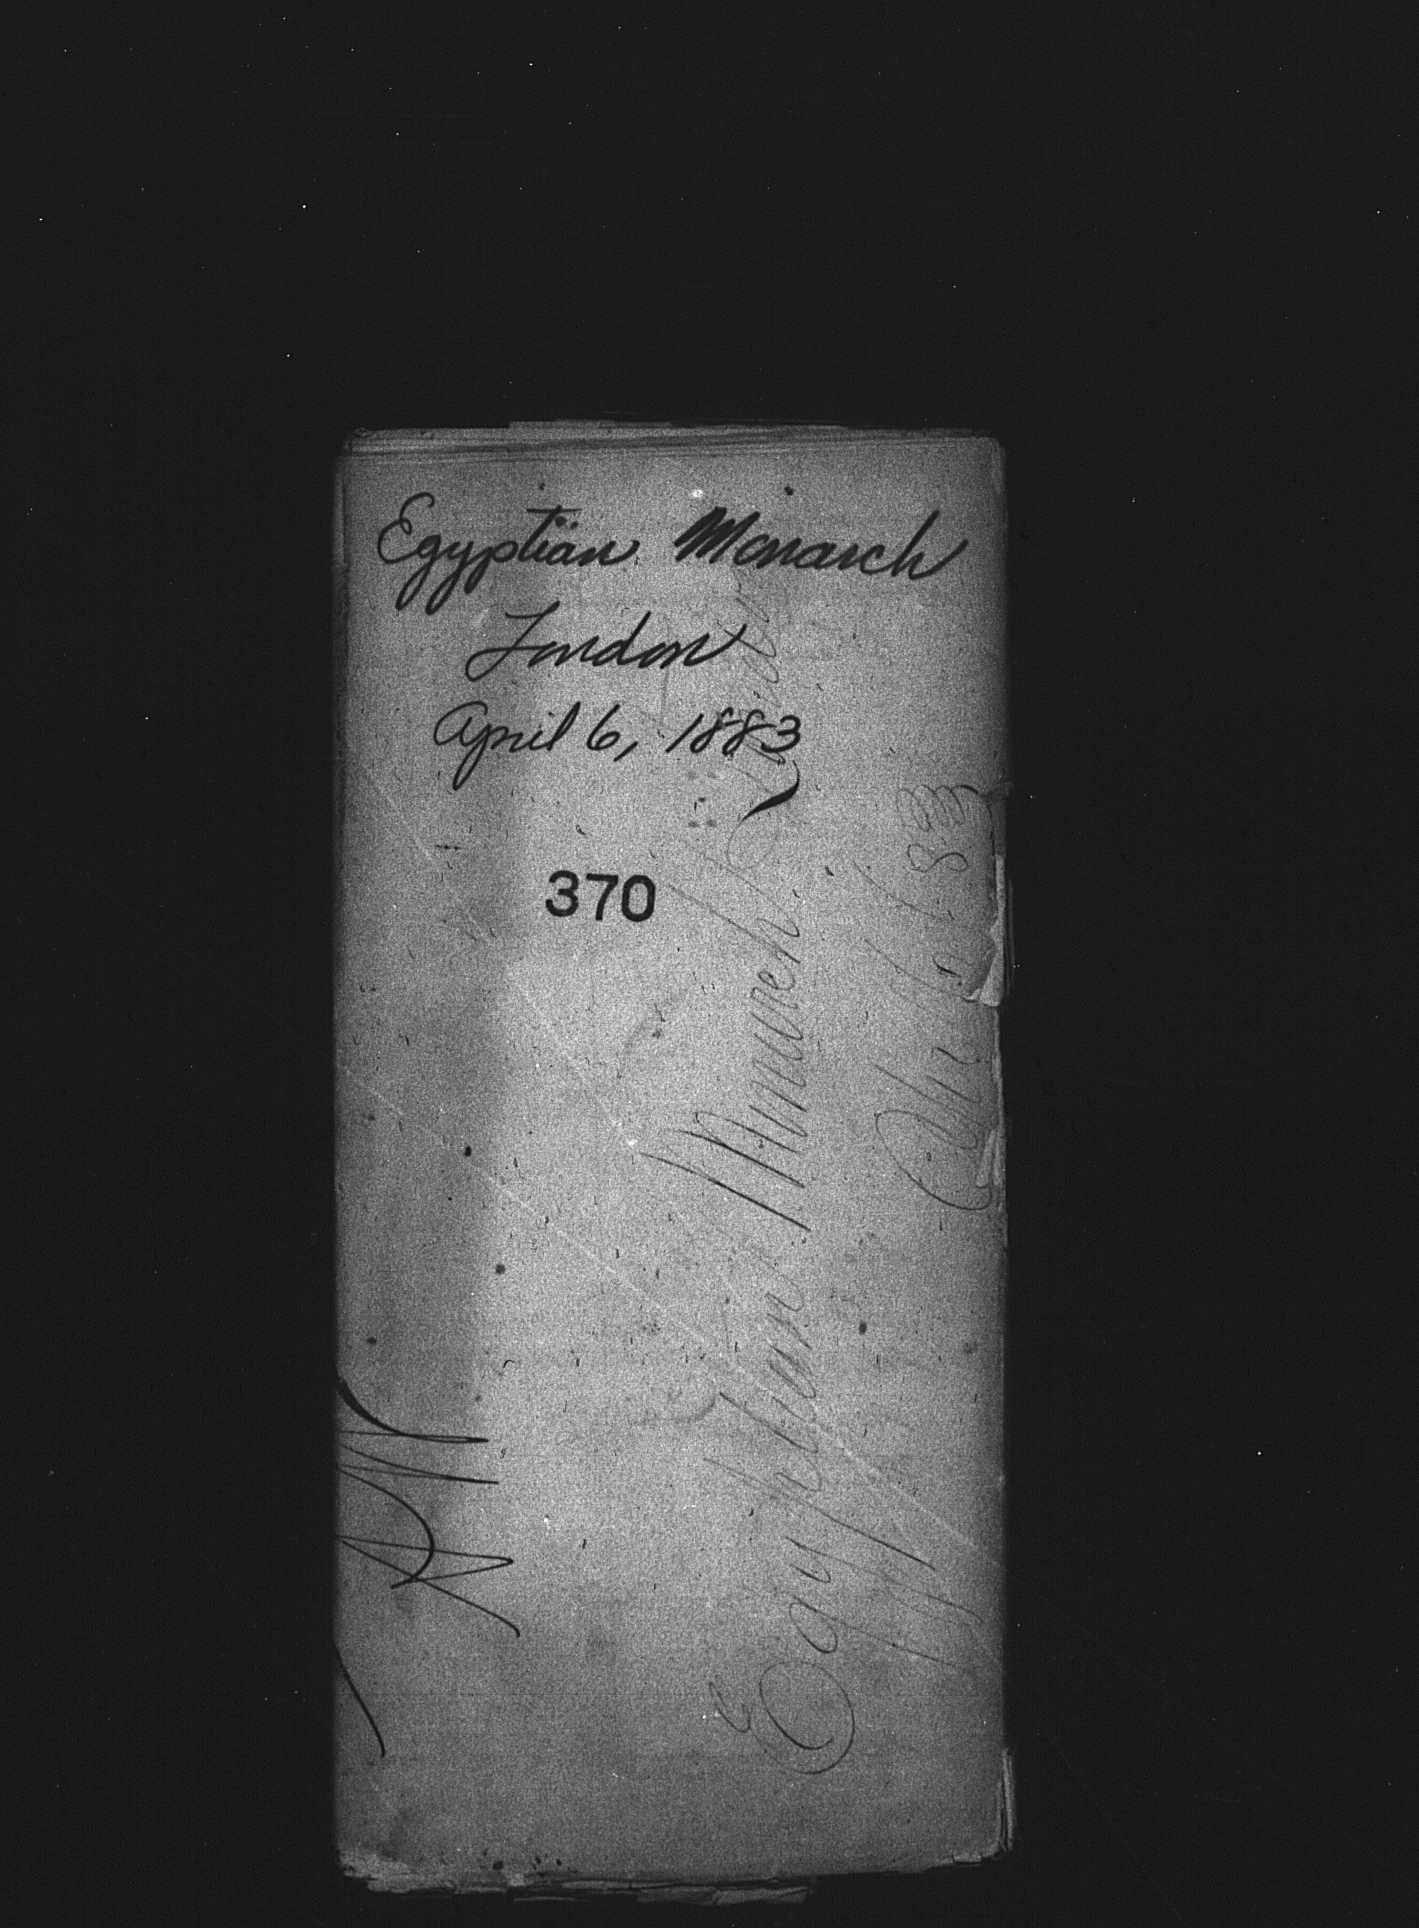 Egyptian Monarch
London
April 6, 1883
370
Egyptian Monarch London